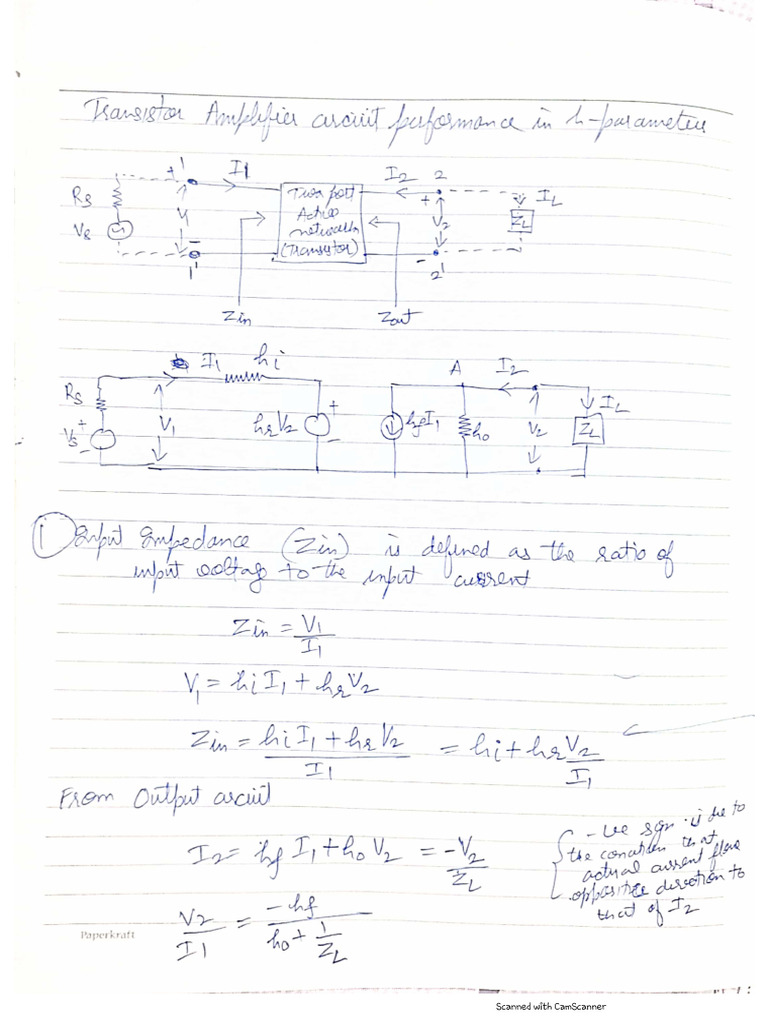 Transistor Amplifier circuit performance in h-parameters
+ 1 I1 I2 2 IL
Rs Vs V1 Two port Active network (Transistor) + V2 ZL
- 1' - 2'
Zin Zout
I1 hi A I2 IL
Rs Vs + - V1 hrV2 + - hfI1 ho V2 ZL
① Input Impedance (Zin) is defined as the ratio of
input voltage to the input current
Zin = V1/I1
V1 = hiI1 + hrV2
Zin = (hiI1 + hrV2)/I1 = hi + hrV2/I1
From Output circuit
I2 = hf I1 + ho V2 = -V2/ZL
{ -ve sign is due to
the condition that
actual current flows
opposite direction to
that of I2
V2/I1 = -hf/(ho + 1/ZL)
Paperkraft
Scanned with CamScanner